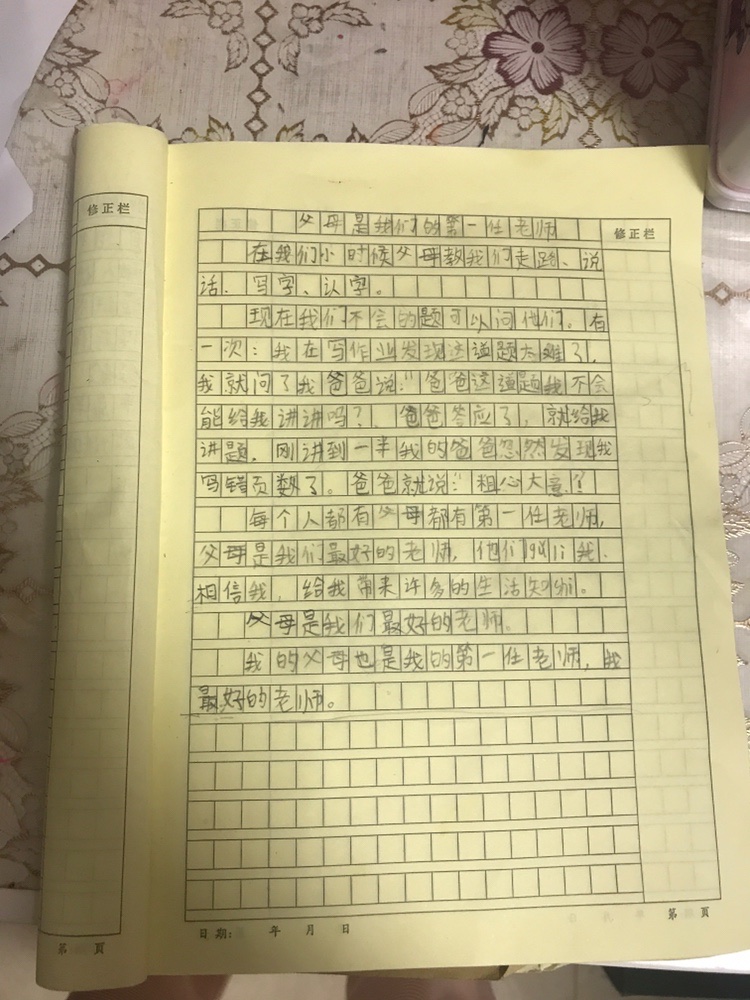 修正栏
父母是我们的第一任老师
修正栏
在我们小时候父母教我们走路、说
话、写字、认字。
现在我们不会的题可以问他们。有
一次：我在写作业发现这道题太难了，
我就问了我爸爸说：“爸爸这道题我不会
能给我讲讲吗？，爸爸答应了，就给我
讲题，刚讲到一半我的爸爸忽然发现我
写错页数了。爸爸就说：“粗心大意！
每个人都有父母都有第一任老师，
父母是我们最好的老师，他们 我、
相信我，给我带来许多的生活知识。
父母是我们最好的老师。
我的父母也是我的第一任老师，我
最好的老师。
日期： 年 月 日
第 页
第 页